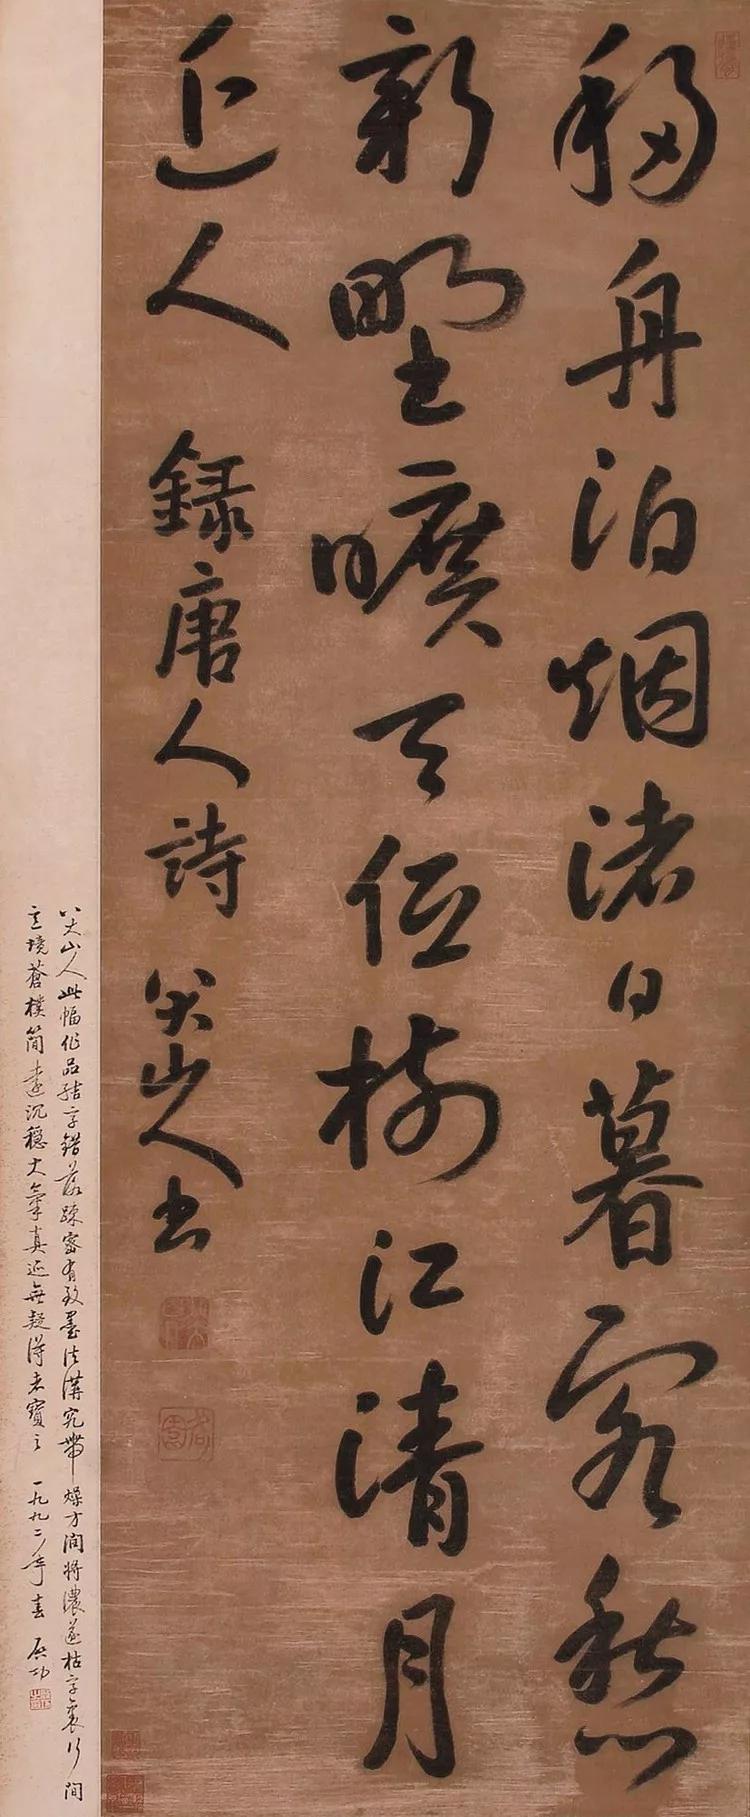 移舟泊烟渚日暮客愁
新野曠天低樹江清月
近人 録唐人詩 八大山人書
八大山人此幅作品結字錯落疎密有致墨法講究帶燥方润將濃遂枯字裏行間
意境蒼樸簡遠沉穩大氣真迹無疑得者寶之 一九九二年春 启功